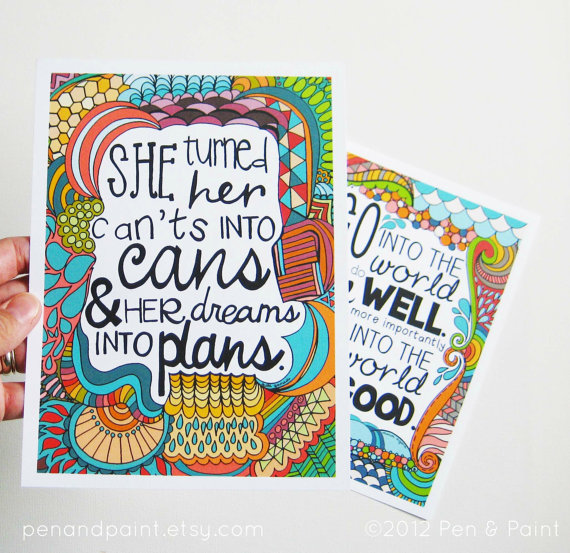 SHE turned
her
can'ts INTO
cans
& HER dreams
INTO plans.
GO INTO THE
world
do
WELL.
more importantly
INTO THE
world
GOOD.
penandpaint.etsy.com
©2012 Pen & Paint